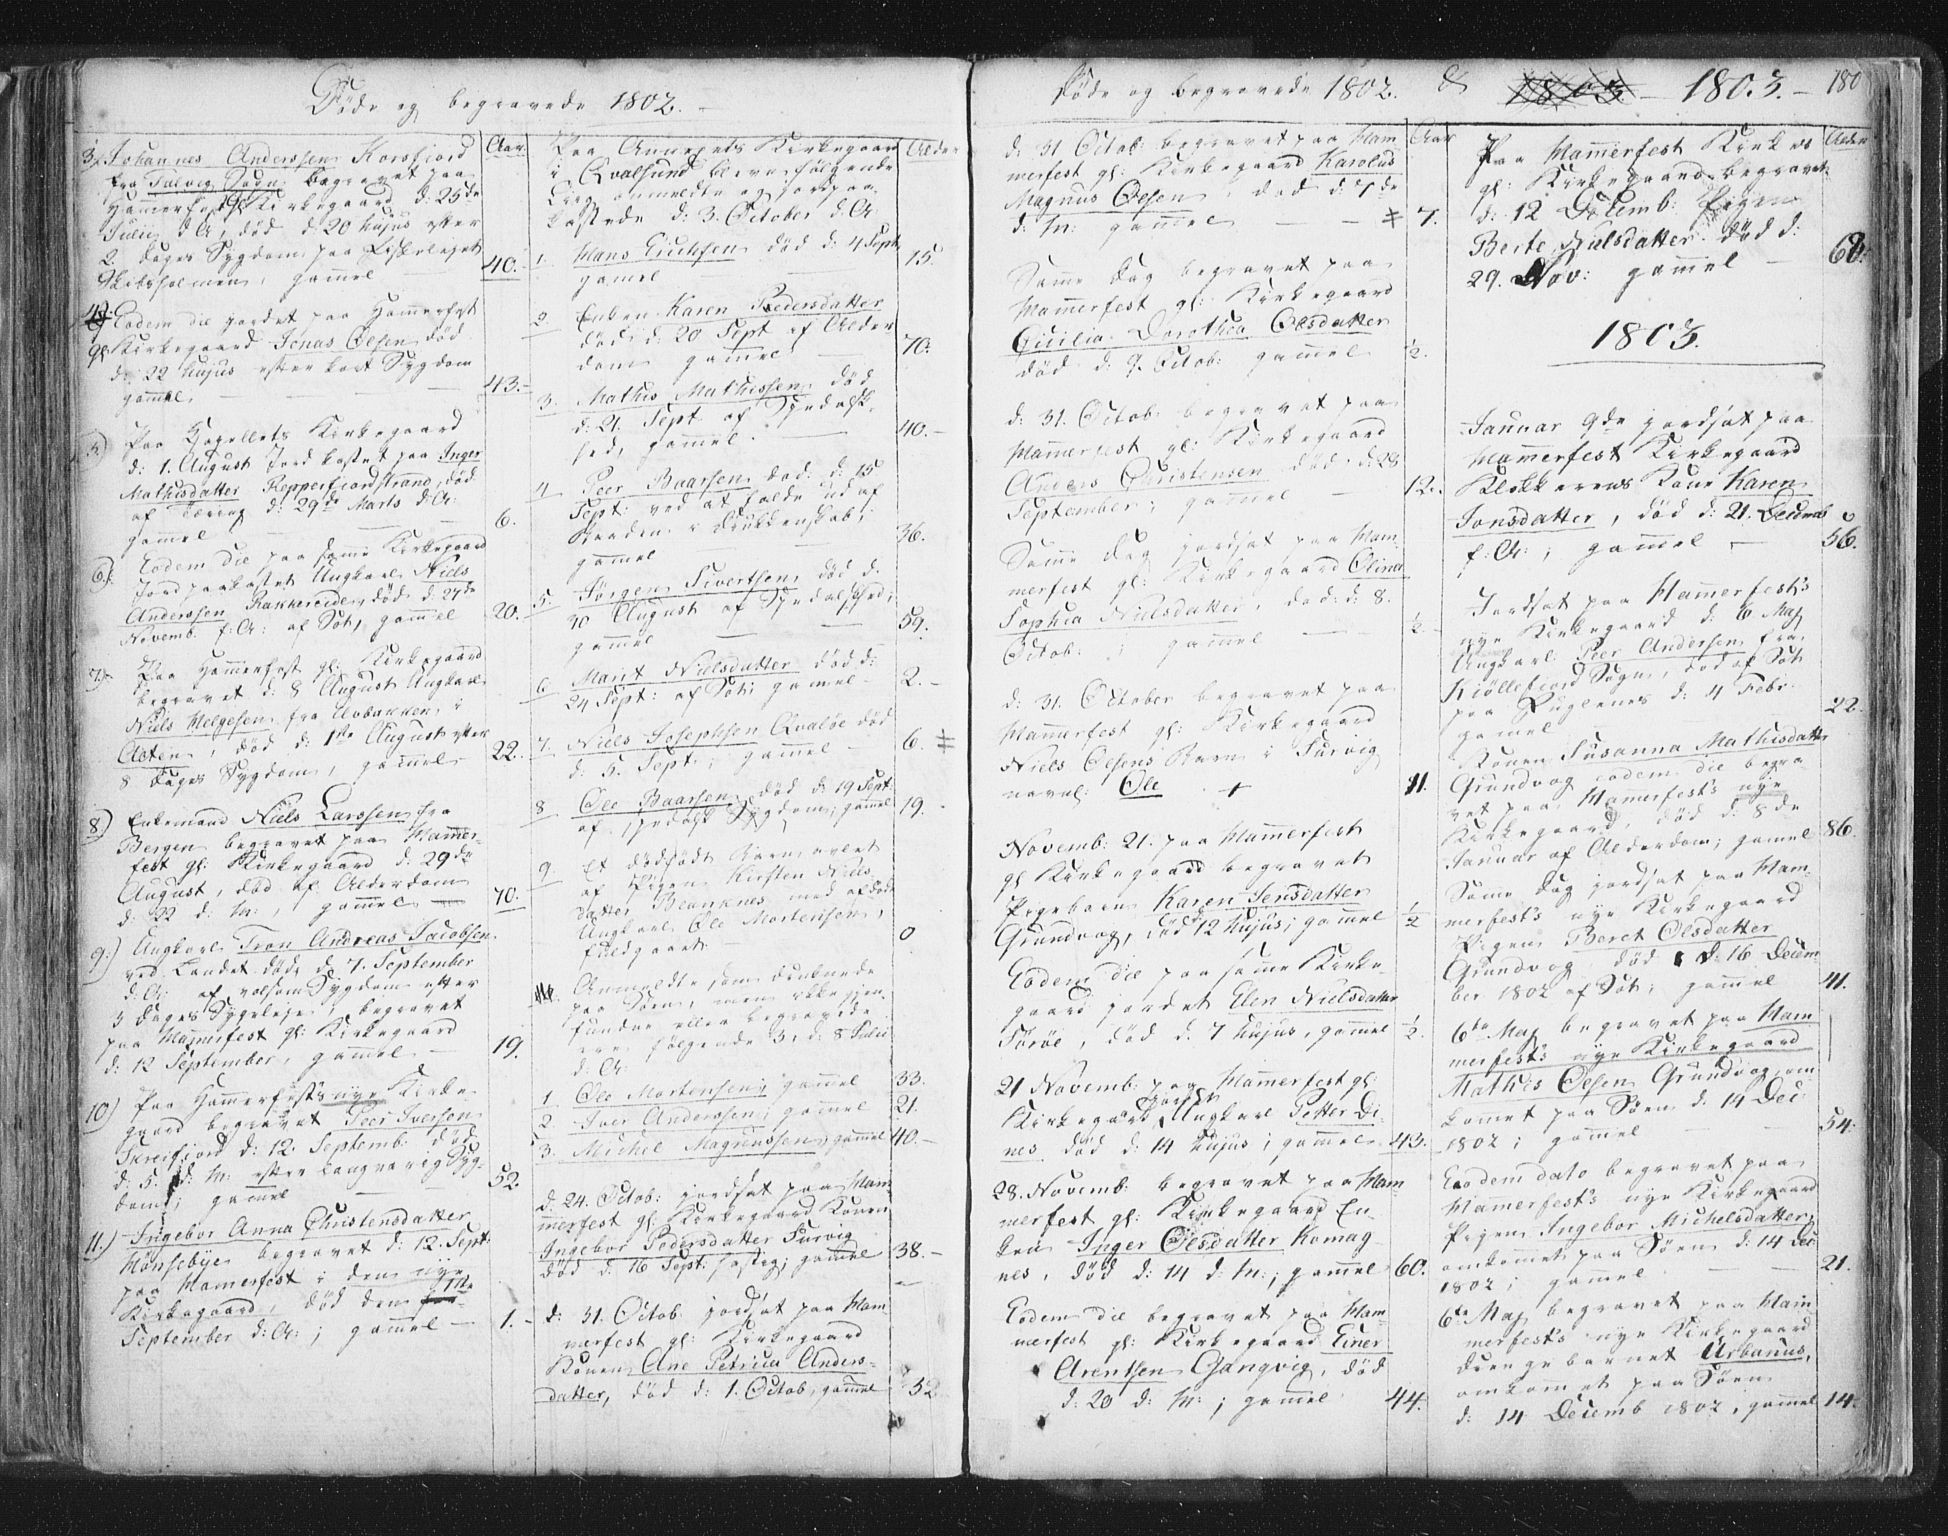 Døde og begravede 1802.
Aar
3. Johannes Anderssen Korsfiord
fra Talvig Sogn begravet paa
Hammerfest gl: Kirkegaard d: 25de
Julii d: A:, død d: 20 hujus efter
2 dages Sygdom paa Fiskerleyet
Skibsholmen, gammel 40.
4. Eodem die jordet paa Hammerfest
gl: Kirkegaard Jonas Olsen død
d: 22 hujus efter kort Sygdom
gammel 43.
5) Paa Kirkegaard
d: 1. August Jord kastet paa Inger
Mathisdatter Repperfiordstrand, død
af Tæring d: 29de Marts d: A:
gammel 6.
6) Eodem die paa samme Kirkegaard
Jord paakastet Ungkarl Niels
Anderssen Rakkereide, død d: 27de
Novemb. f: A: af Sot, gammel 20.
7) Paa Hammerfest gl: Kirkegaard
begravet d: 8 August Ungkarl
Niels Helgesen fra i
Alten, død d: 1ste August efter
8 dages Sygdom, gammel 22.
8) Enkemand Niels Larssen fra
Bergen begravet paa Hammer-
fest gl: Kirkegaard d: 29de
August, død af Alderdom
d: 22 d: M:, gammel 70.
9) Ungkarl Tron Andreas Jacobsen
ved Landet døde d: 7. September
d: A: af voldsom Sygdom efter
3 dages Sygeleje, begravet
paa Hammerfest gl: Kirkegaard
d: 12 September, gammel 19.
10) Paa Hammerfests nye Kirke
gaard begravet Peer Iversen
Skreifiord d: 12. Septemb: død
d: 5. d: M: efter langvarig Syg-
dom, gammel 52.
11) Ingebor Anna Christensdatter
Hønsebye begravet d: 12. Sept:
paa Hammerfest i den nye
Kirkegaard, død den 1ste
September d: A:; gammel 1.
Paa Annexets Kirkegaard Alder
i Qvalsund bleve følgende
Liig anmeldte og jordpaa-
kastede d: 3. October d: A:
1. Hans Erichsen død d: 4 Sept.
gammel 15.
2. Enken Karen Pedersdatter
død d: 20 Sept af Alder
dom gammel 70.
3. Mathis Mathissen død
d: 21. Sept af Spedalsk-
hed, gammel 40.
4 Peer Baarsen død d: 15
Sept: ved at falde ud af
Baaden i Drukkenskab;
gammel 36.
5. Jørgen Sivertsen død d:
30 August af Spedalskhed;
gammel 59.
6 Marit Nielsdatter død d:
24 Sept: af Sot; gammel 2.
7. Niels Josephsen Qvaløe død
d: 5. Sept:; gammel 6.
8 Ole Baarsen død d: 19 Sept.
af Spedalsk Sygdom; gammel 19.
9. Et dødfødt Barn avlet
af Pigen Kirsten Niels-
datter Beanknes med afdøde
Ungkarl Ole Mortensen,
fuldgaaet 0
Anmeldte som druknede
paa Søen, men ikke gjen-
fundne eller begravede
ere følgende 3, d: 8 Julii
d: A:
1. Ole Mortensen; gammel 33.
2 Iver Anderssen; gammel 21.
3. Michel Magnussen, gammel 40.
d: 24. Octob: jordsat paa Ham
merfest gl: Kirkegaard Konen
Ingebor Pedersdatter Survig
død d: 16 Sept: hastig; gammel 38.
d: 31. Octob: jordsat paa Ham
merfest gl: Kirkegaard
Konen Ane Petricia Anders-
datter, død d: 1. Octob, gammel 32.
Døde og begravede 1802. & 1803. 180
d: 31 Octob: begravet paa Ham Aar
merfest gl: Kirkegaard Karolus
Magnus Olsen død d: 7de
d: M: gammel 7.
Samme Dag begravet paa
Hammerfest gl: Kirkegaard
Cicilia Dorothea Olsdatter
død d: 9. Octob: gammel ½.
d: 31. Octob: begravet paa
Hammerfest gl: Kirkegaard
Anders Christensen død d: 28
September; gammel 12.
Samme Dag jordsat paa Ham-
merfest gl: Kirkegaard Olina
Sophia Nielsdatter, død d: 8.
Octob:; gammel ½
d: 31. October begravet paa
Hammerfest gl: Kirkegaard
Niels Olsens Barn i Survig
navnl: Ole 11.
Novemb: 21. paa Hammerfest
gl: Kirkegaard begravet
Pigebarn Karen Jensdatter
Grundvog, død 12 hujus; gammel ½
Eodem die paa samme Kirke-
gaard jordet Elen Nielsdatter
Sørøe, død d: 7 hujus, gammel ½.
21 Novemb: paa Hammerfest gl:
Kirkegaard jordsat Ungkarl Petter Di
nes. død d: 14 hujus; gammel 43.
28. Novemb: begravet paa Ham-
merfest gl: Kirkegaard En-
ken Inger Olsdatter Komag
nes, død d: 14 d: M:; gammel 60.
Eodem die begravet paa Ham-
merfest gl: Kirkegaard Einer
Arentsen Gangvig, død
d: 20 d: M:; gammel 44.
Paa Hammerfest Kirkes Alder
gl: Kirkegaard begravet
d: 12 Decemb: Pigen
Berte Nielsdatter død d:
29. Nov: gammel 60.
1803.
Januar 9de jordsat paa
Hammerfest Kirkegaard
Klokkerens Kone Karen
Jonsdatter, død d: 21. Decemb
f: A:; gammel 56.
Jordsat paa Hammerfest's
nye Kirkegaard d: 6 Maj
Ungkarl Peer Andersen fra
Kiöllefiord Sogn, død af Sot
paa Fuglenes d: 4 Febr:
gammel 22.
Konen Susanna Mathisdatter
Grundvog eodem die begra
vet paa Hammerfest's nye
Kirkegaard, død d: 8de
Januar af Alderdom; gammel 86.
Samme Dag jordsat paa Ham-
merfest's nye Kirkegaard
Pigen Beret Olsdatter
Grundvog død d: 16 Decem
ber 1802 af Sot; gammel 41.
6te Maj begravet paa Ham
merfest's nye Kirkegaard
Mathis Olsen Grundvog, om-
kommet paa Søen d: 14 Dec:
1802; gammel 54.
Eodem dato begravet paa
Hammerfest's nye Kirkegaard
Pigen Ingebor Michelsdatter
omkommet paa Søen d: 14 Dec
1802; gammel 21.
6te Maj begravet paa Ham
merfest's nye Kirkegaard
Drengebarnet Urbanus,
omkommet paa Søen
d: 14 Decemb 1802, gammel 14.